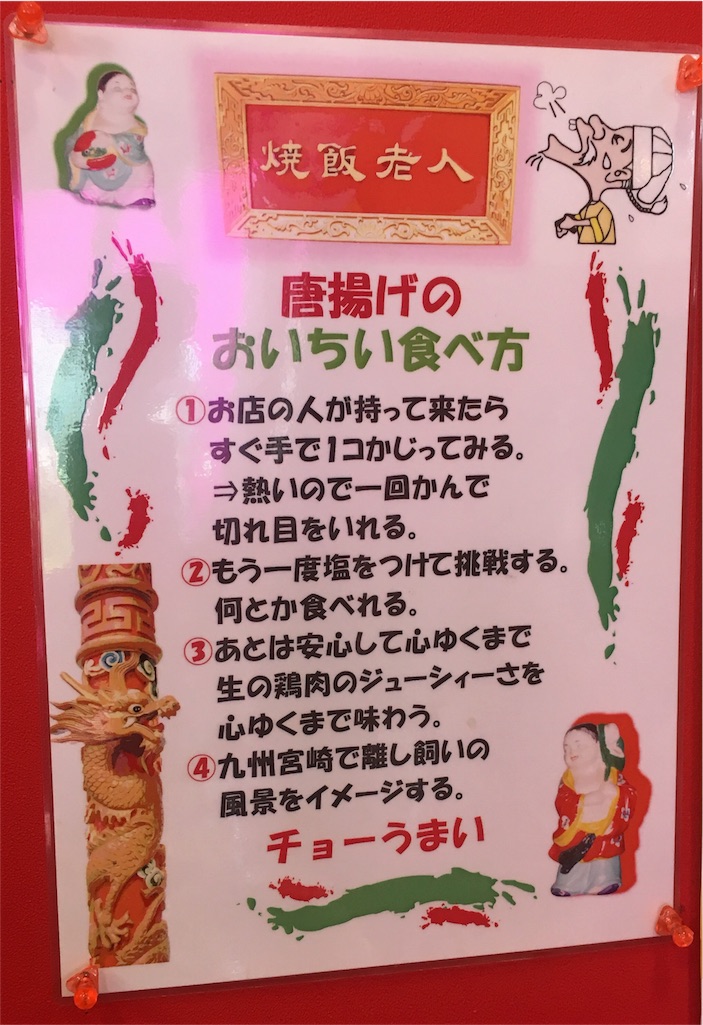 焼飯老人
唐揚げの
おいちい食べ方
①お店の人が持って来たら
すぐ手で1コかじってみる。
⇒熱いので一回かんで
切れ目をいれる。
②もう一度塩をつけて挑戦する。
何とか食べれる。
③あとは安心して心ゆくまで
生の鶏肉のジューシィーさを
心ゆくまで味わう。
④九州宮崎で離し飼いの
風景をイメージする。
チョーうまい